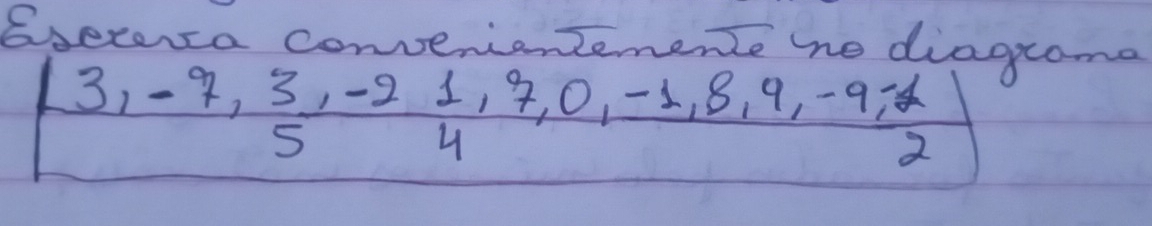 Escreva convenientemente no diagrama
3, -7, 3/5, -2 1/4, 7, 0, -1, 8, 9, -9, -1/2